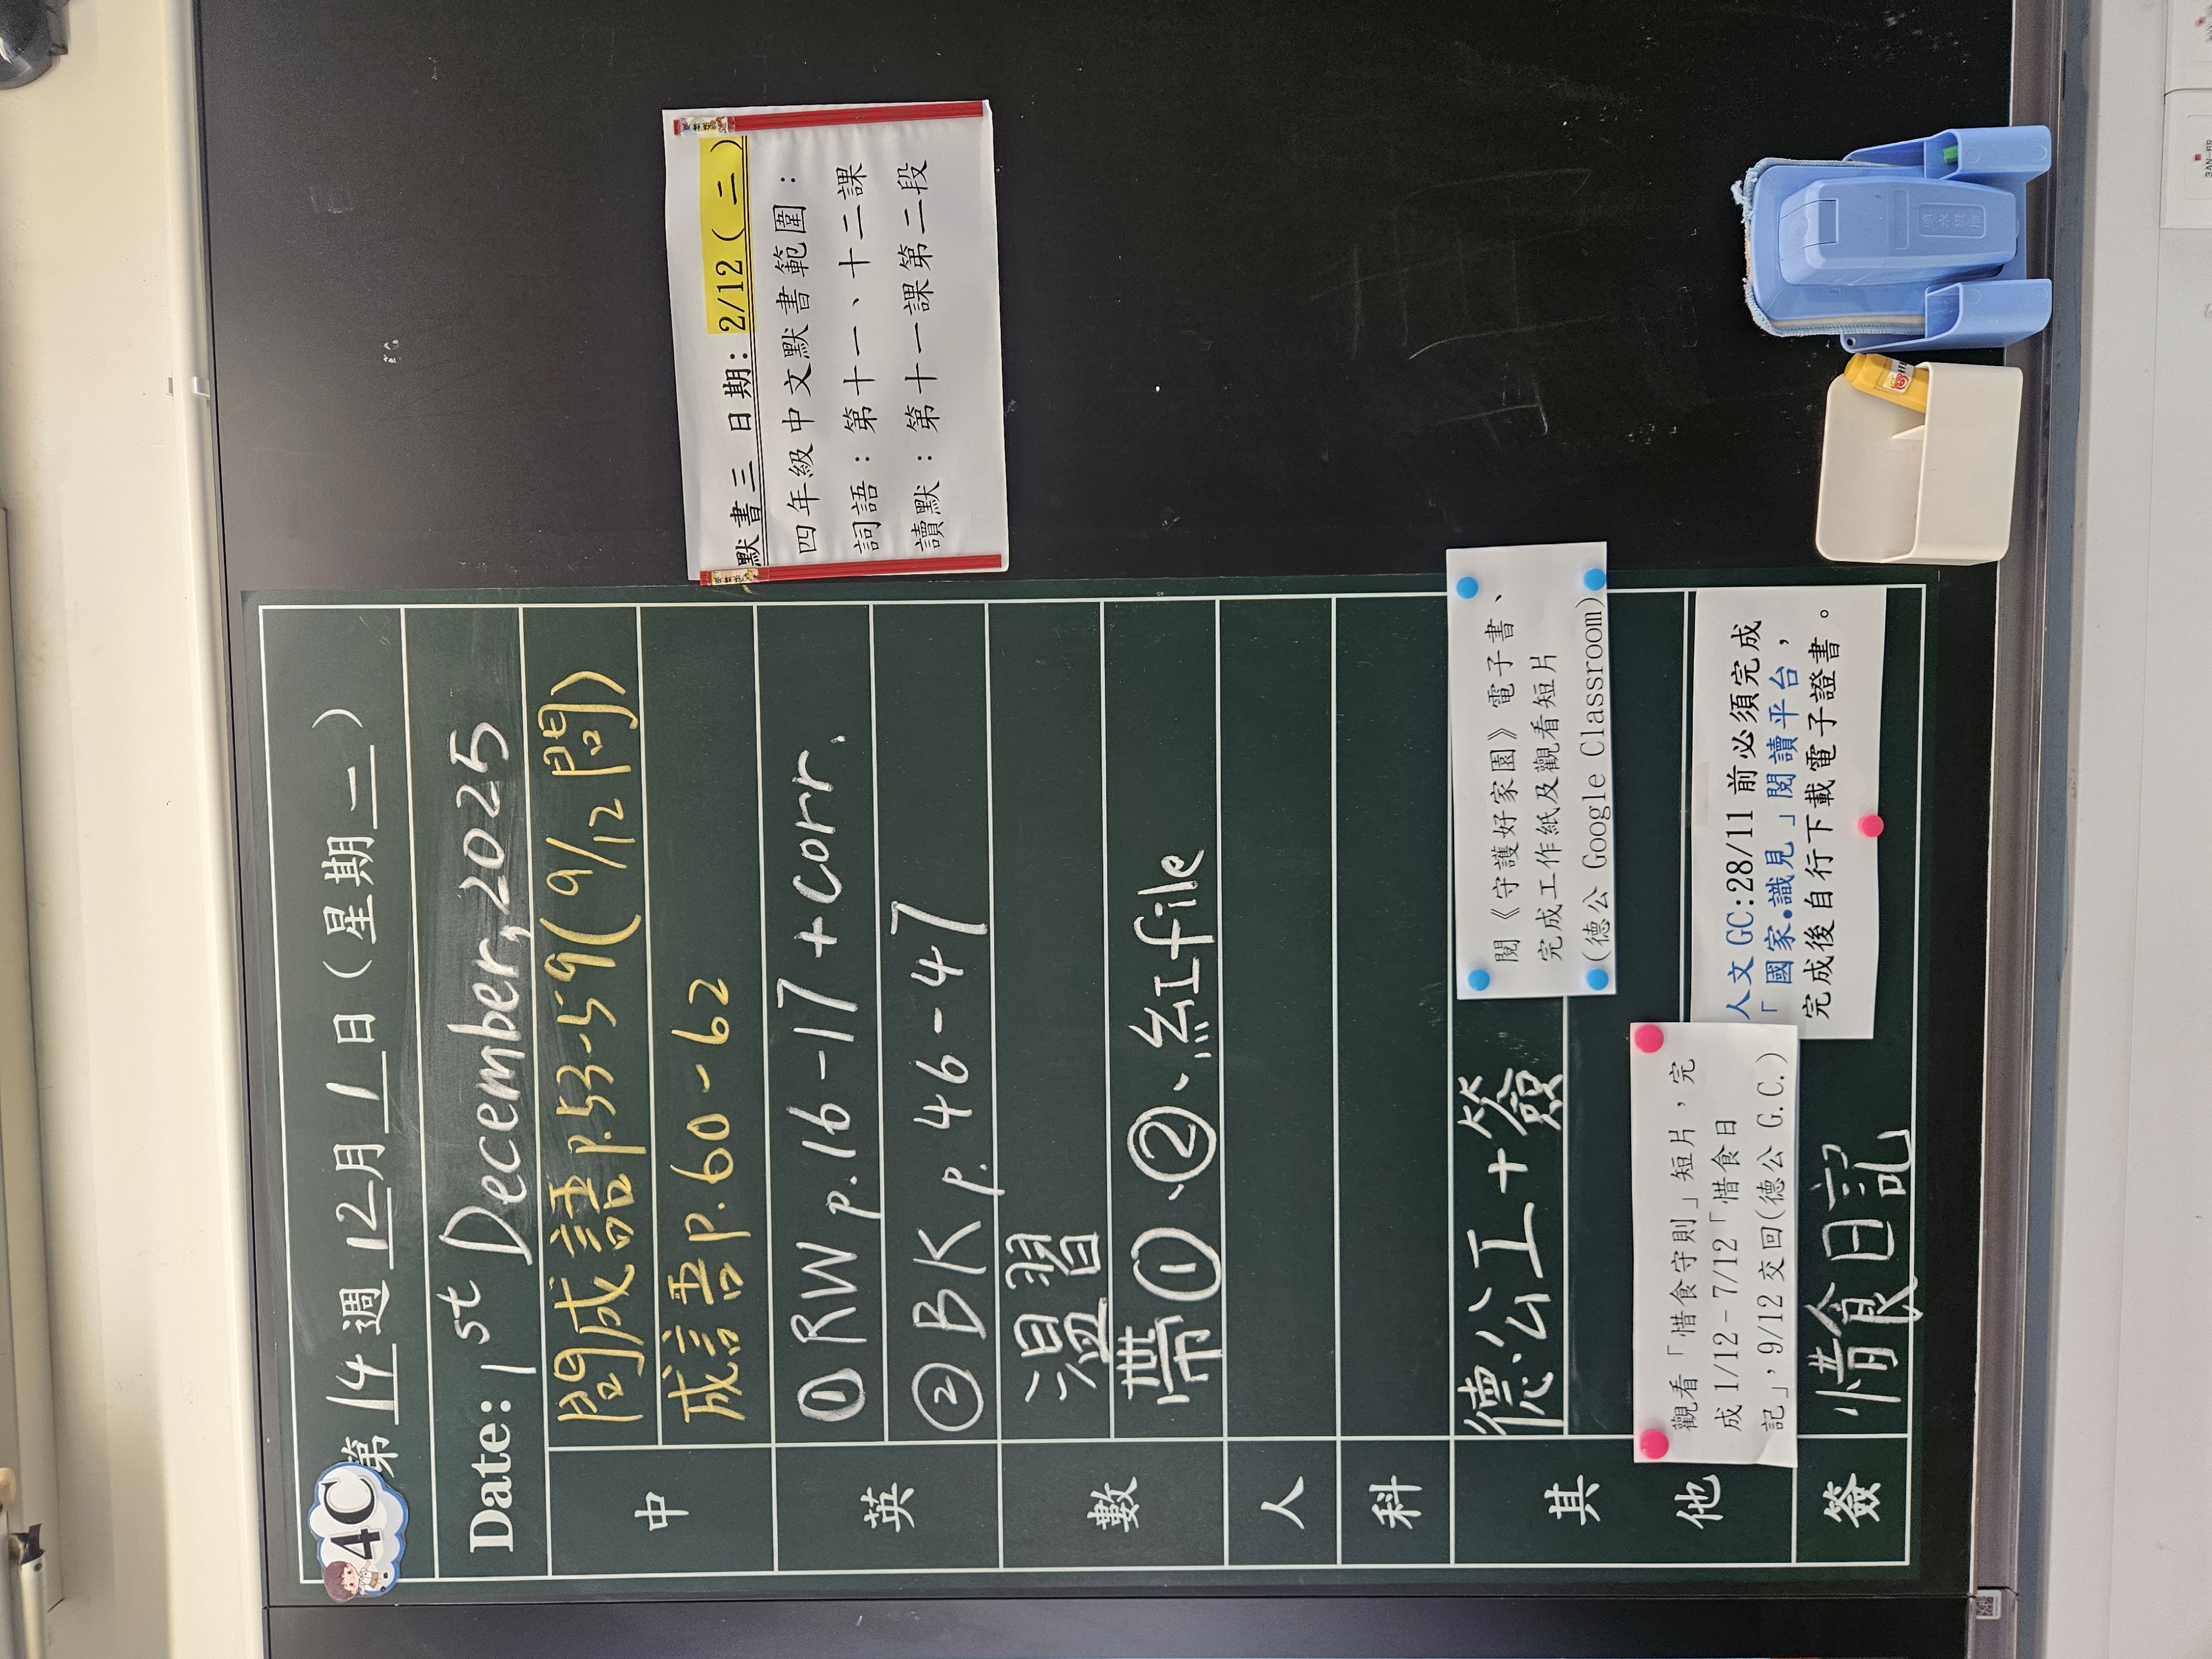 4C
第14週12月1日(星期一)
Date: 1st December, 2025
中
問成語p.53-59(9/12問)
成語p.60-62
英
①RW p.16-17 + corr.
②BK p.46-47
數
溫習
帶①、②、紅file
人
科
其他
德公工+簽
閱《守護好家園》電子書、
完成工作紙及觀看短片
(德公 Google Classroom)
觀看「惜食守則」短片，完
成1/12-7/12「惜食日
記」，9/12交回(德公 G.C.)
人文GC:28/11 前必須完成
「國家•識見」閱讀平台，
完成後自行下載電子證書。
簽
惜食日記
默書三 日期：2/12(二)
四年級中文默書範圍：
詞語：第十一、十二課
讀默：第十一課第二段